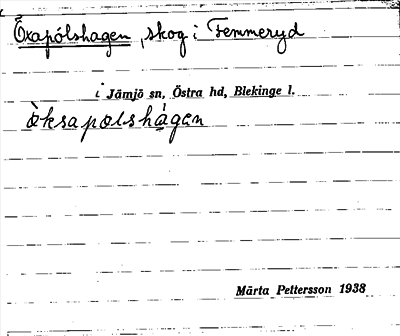 Öxapólshagen, skog i Femmeryd
i Jämjö sn, Östra hd, Blekinge l.
òksapolshágen
Märta Pettersson 1938